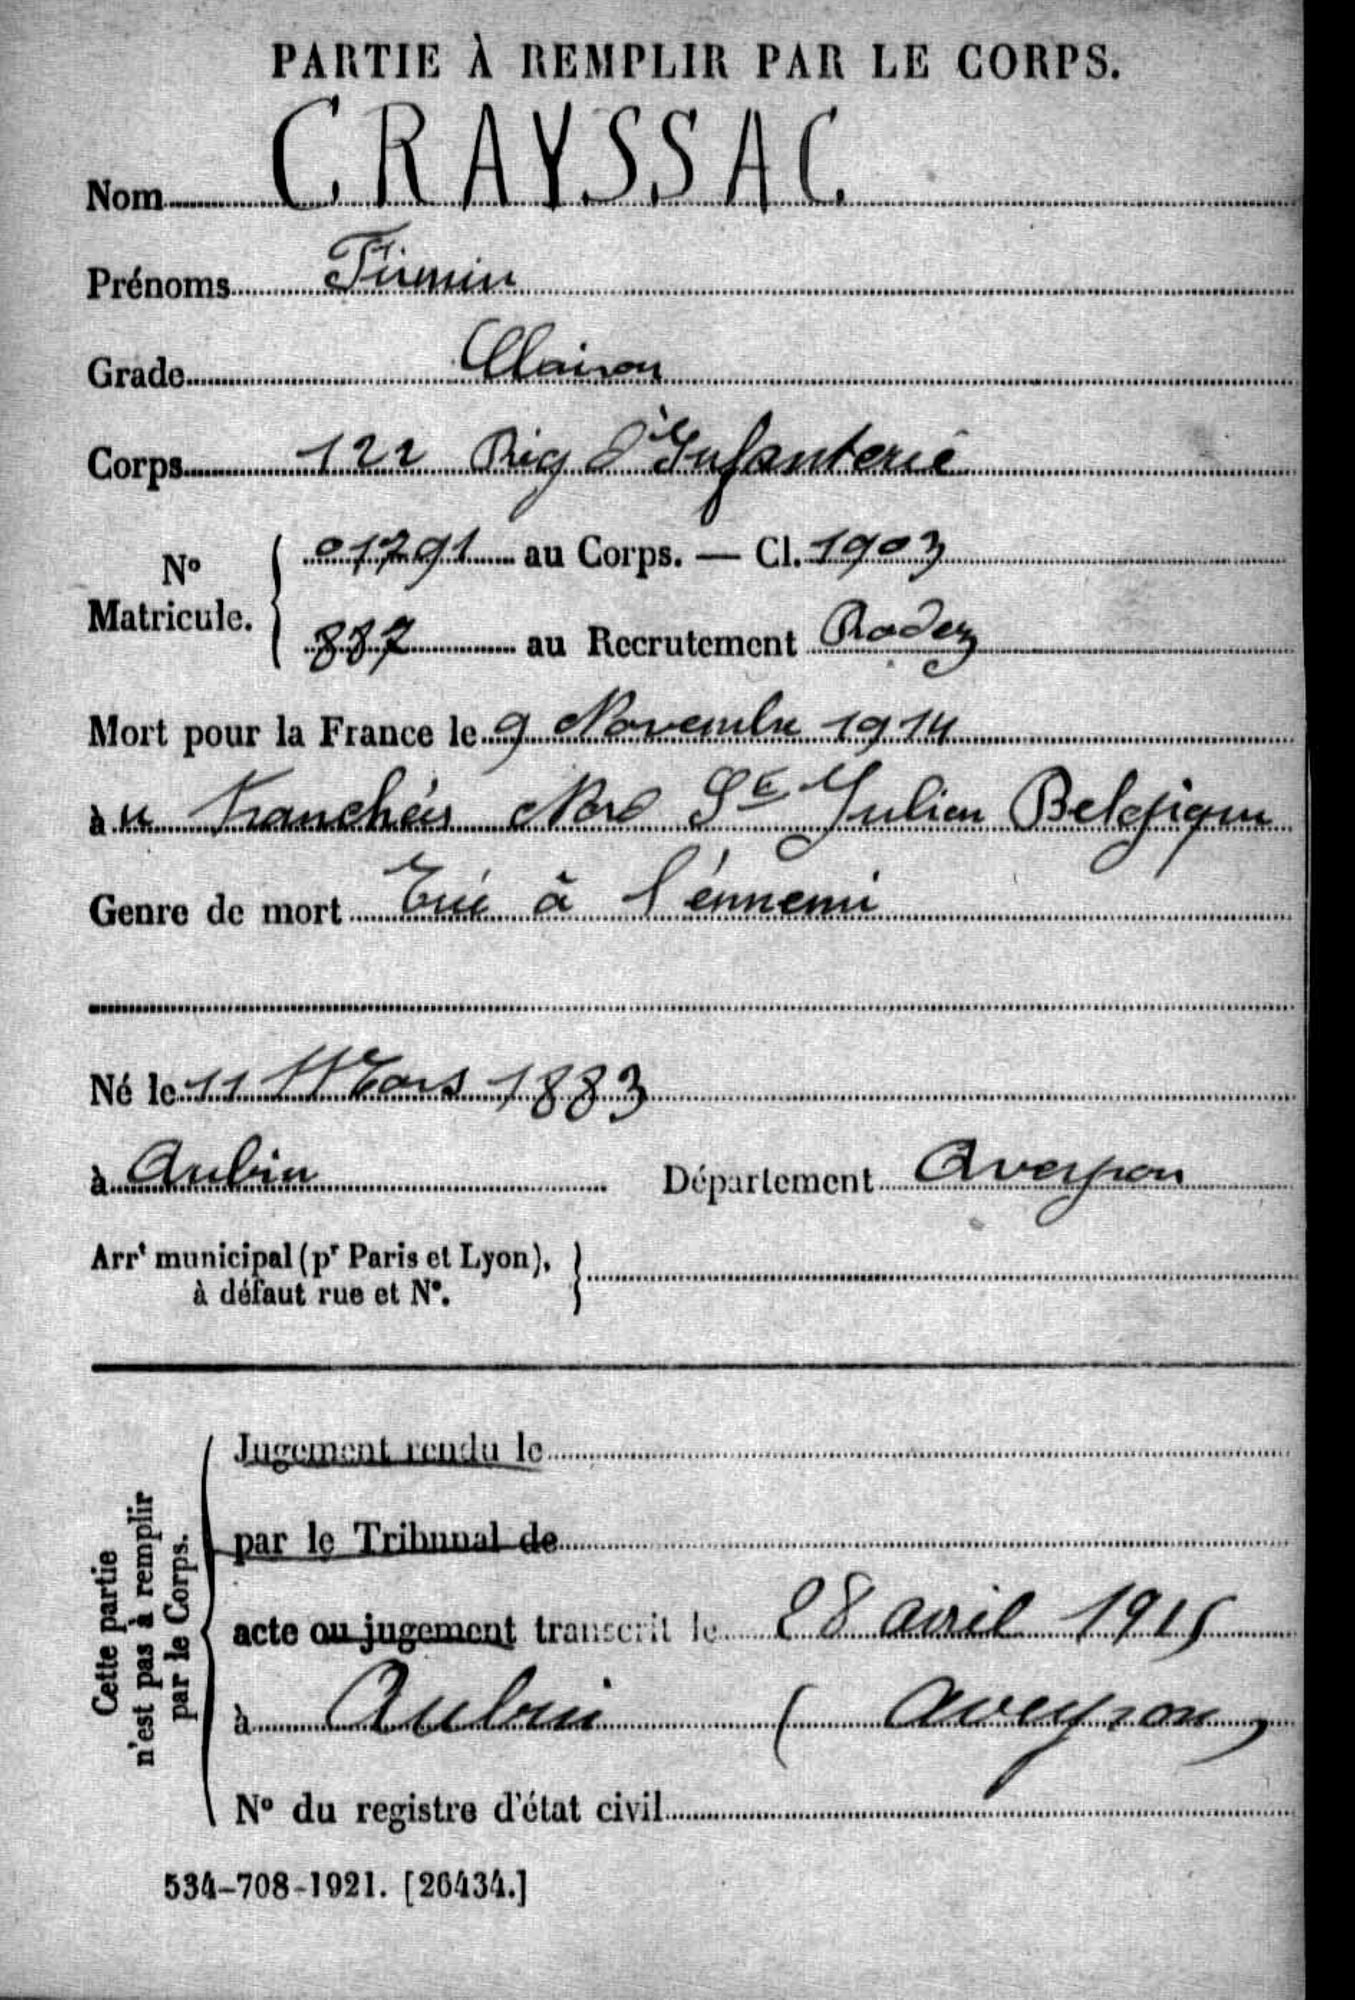 PARTIE À REMPLIR PAR LE CORPS.
Nom CRAYSSAC
Prénoms Firmin
Grade Clairon
Corps 122 Rég d'Infanterie
N° Matricule. 01791 au Corps. — Cl. 1903
887 au Recrutement Rodez
Mort pour la France le 9 Novembre 1914
à u Tranchées Nord St Julien Belgique
Genre de mort Tué à l'énnemi
Né le 11 Mars 1883
à Aubin Département Aveyron
Arrt municipal (pr Paris et Lyon),
à défaut rue et N°.
Cette partie
n'est pas à remplir
par le Corps.
Jugement rendu le
par le Tribunal de
acte ou jugement transcrit le 28 avril 1915
à Aubin (Aveyron)
N° du registre d'état civil
534-708-1921. [26434.]